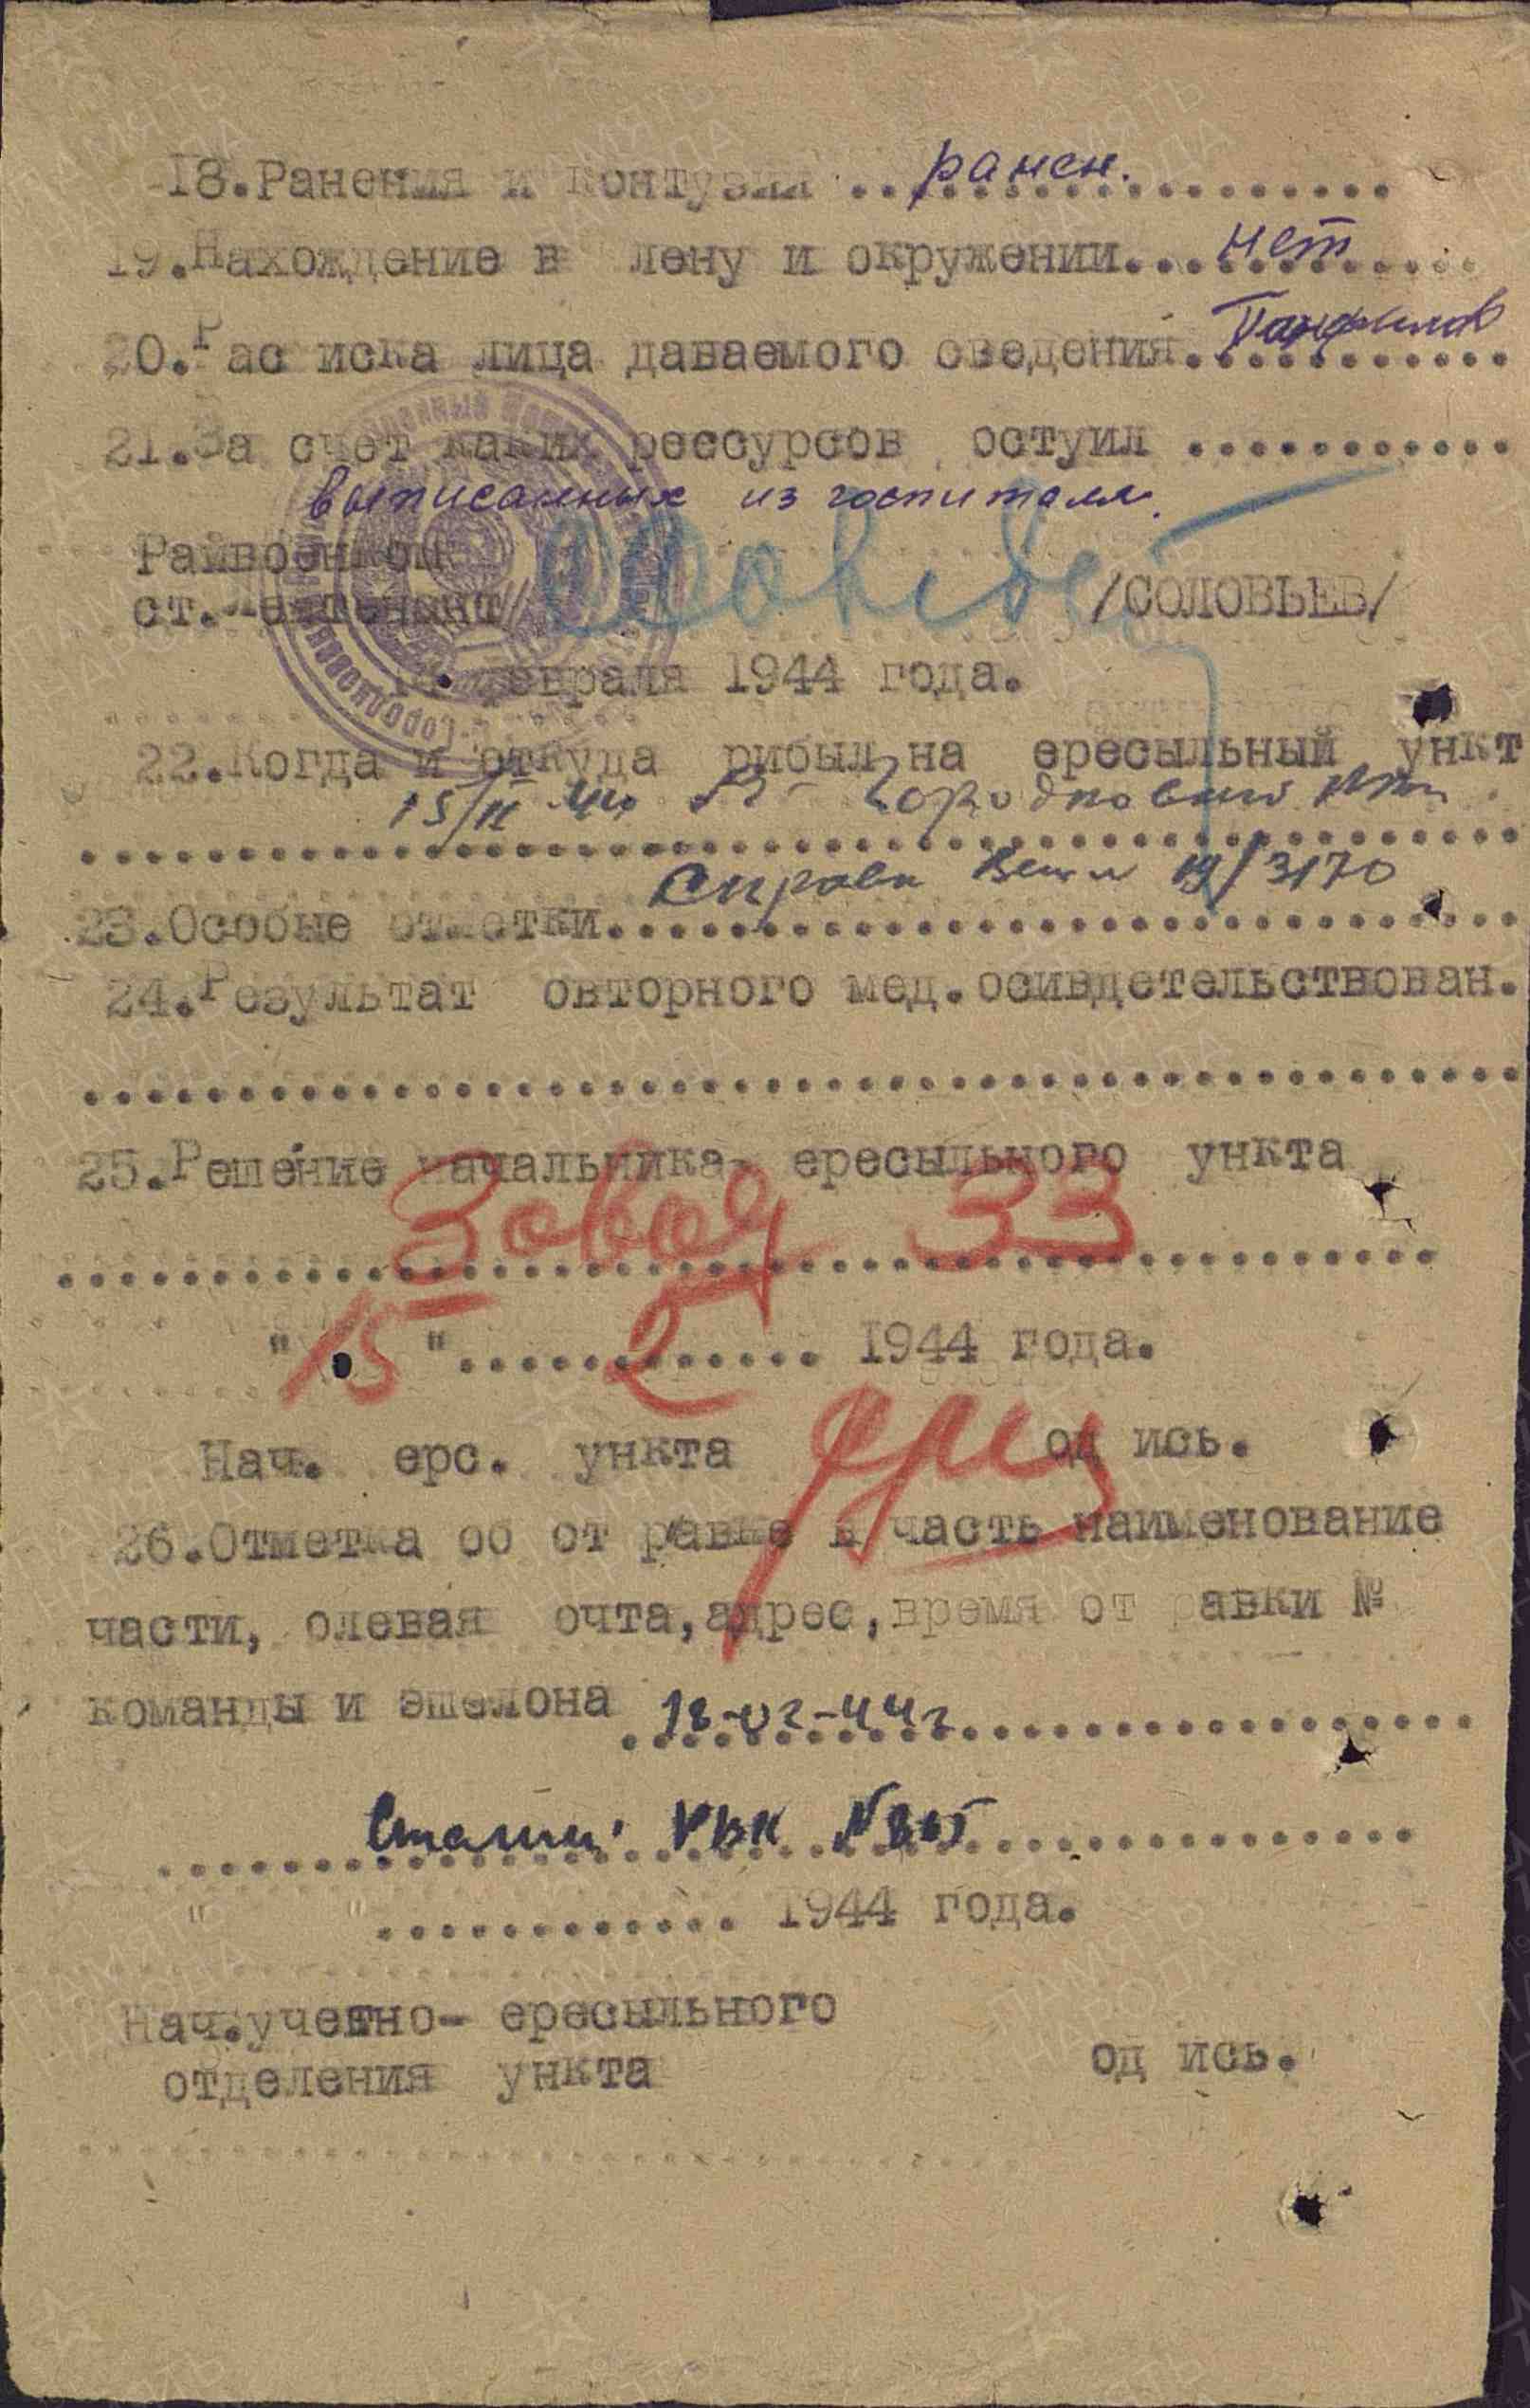 18.Ранения и контузии .. ранен.
19.Нахождение в лену и окружении... нет
20.Рас иска лица даваемого сведения. Панфилов
21.За счет каких рессурсов остуил ...........
выписанных из госпиталя.
Райвоенком
ст.лейтенант /СОЛОВЬЕВ/
февраля 1944 года.
22.Когда и откуда рибыл на ересыльный ункт
15/II 44
23.Особые отметки... 19/3170
24.Результат овторного мед.осивдетельствован.
25.Решение начальника ересыльного ункта
33
"15" 2 1944 года.
Нач. ерс. ункта од ись.
26.Отметка об от равке в часть наименование
части, олевая очта,адрес,время от равки №
команды и эшелона 18-02-44г
РВК
" "............. 1944 года.
Нач.учетно- ересыльного
отделения ункта од ись.